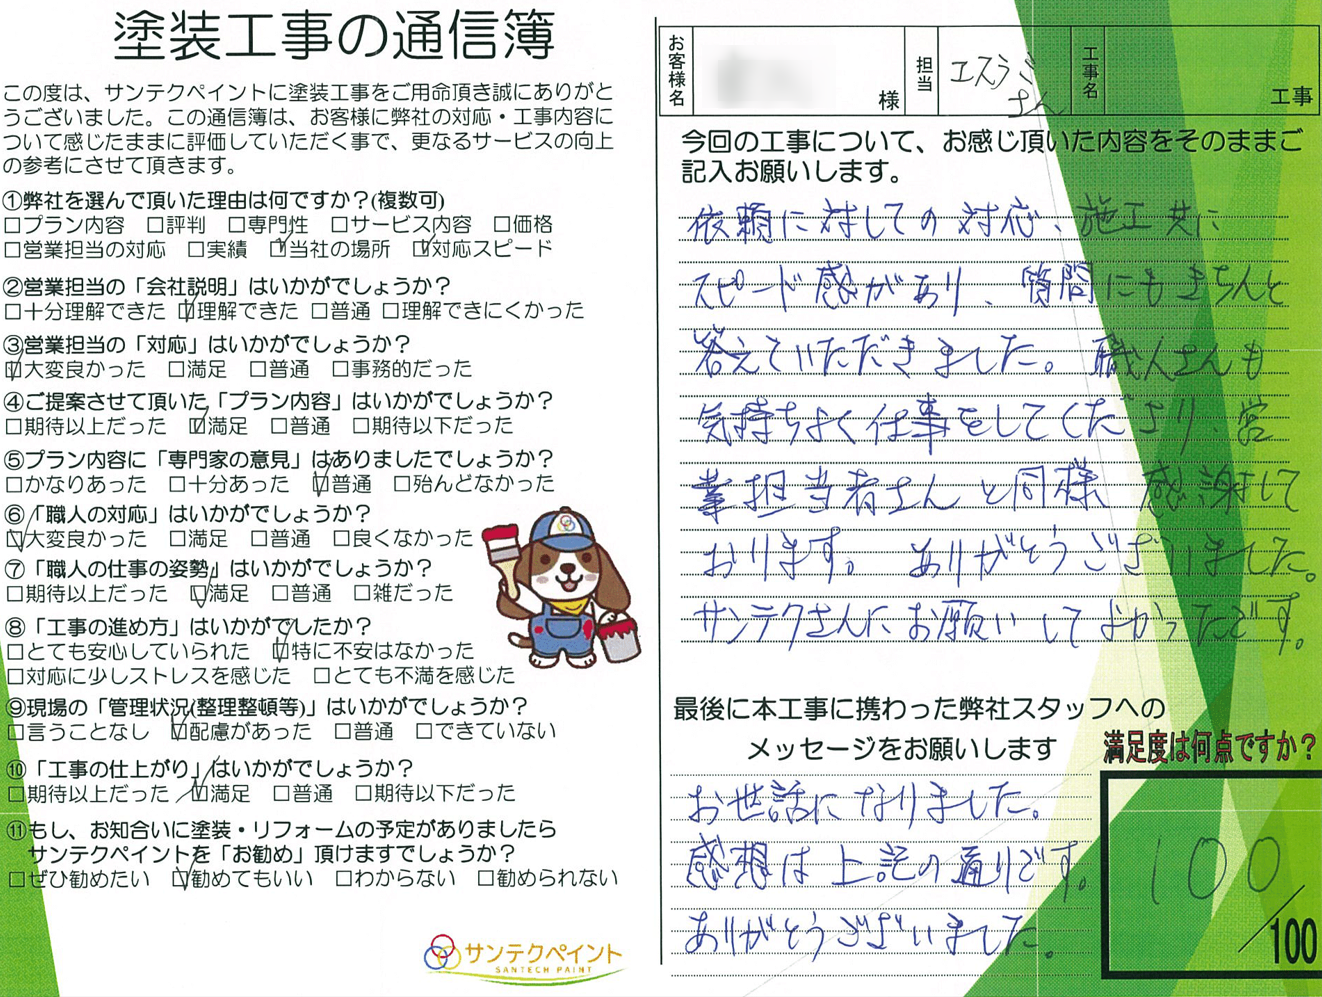 塗装工事の通信簿
この度は、サンテクペイントに塗装工事をご用命頂き誠にありがと
うございました。この通信簿は、お客様に弊社の対応・工事内容に
ついて感じたままに評価していただく事で、更なるサービスの向上
の参考にさせて頂きます。
①弊社を選んで頂いた理由は何ですか？(複数可)
□プラン内容 □評判 □専門性 □サービス内容 □価格
□営業担当の対応 □実績 ☑当社の場所 ☑対応スピード
②営業担当の「会社説明」はいかがでしょうか？
□十分理解できた ☑理解できた □普通 □理解できにくかった
③営業担当の「対応」はいかがでしょうか？
☑大変良かった □満足 □普通 □事務的だった
④ご提案させて頂いた「プラン内容」はいかがでしょうか？
□期待以上だった ☑満足 □普通 □期待以下だった
⑤プラン内容に「専門家の意見」はありましたでしょうか？
□かなりあった □十分あった ☑普通 □殆んどなかった
⑥「職人の対応」はいかがでしょうか？
☑大変良かった □満足 □普通 □良くなかった
⑦「職人の仕事の姿勢」はいかがでしょうか？
□期待以上だった ☑満足 □普通 □雑だった
⑧「工事の進め方」はいかがでしたか？
□とても安心していられた ☑特に不安はなかった
□対応に少しストレスを感じた □とても不満を感じた
⑨現場の「管理状況(整理整頓等)」はいかがでしょうか？
□言うことなし ☑配慮があった □普通 □できていない
⑩「工事の仕上がり」はいかがでしょうか？
□期待以上だった ☑満足 □普通 □期待以下だった
⑪もし、お知合いに塗装・リフォームの予定がありましたら
サンテクペイントを「お勧め」頂けますでしょうか？
□ぜひ勧めたい ☑勧めてもいい □わからない □勧められない
サンテクペイント
SANTECH PAINT
お客様名 様 担当 エスラご さん 工事名 工事
今回の工事について、お感じ頂いた内容をそのままご
記入お願いします。
依頼に対しての対応、施工共に
スピード感があり、質問にもきちんと
答えていただきました。職人さんも
気持ちよく仕事をしてくださり、営
業担当者さんと同様感謝して
おります。ありがとうございました。
サンテクさんにお願いしてよかったです。
最後に本工事に携わった弊社スタッフへの
メッセージをお願いします
お世話になりました。
感想は上記の通りです。
ありがとうございました。
満足度は何点ですか？
100/100